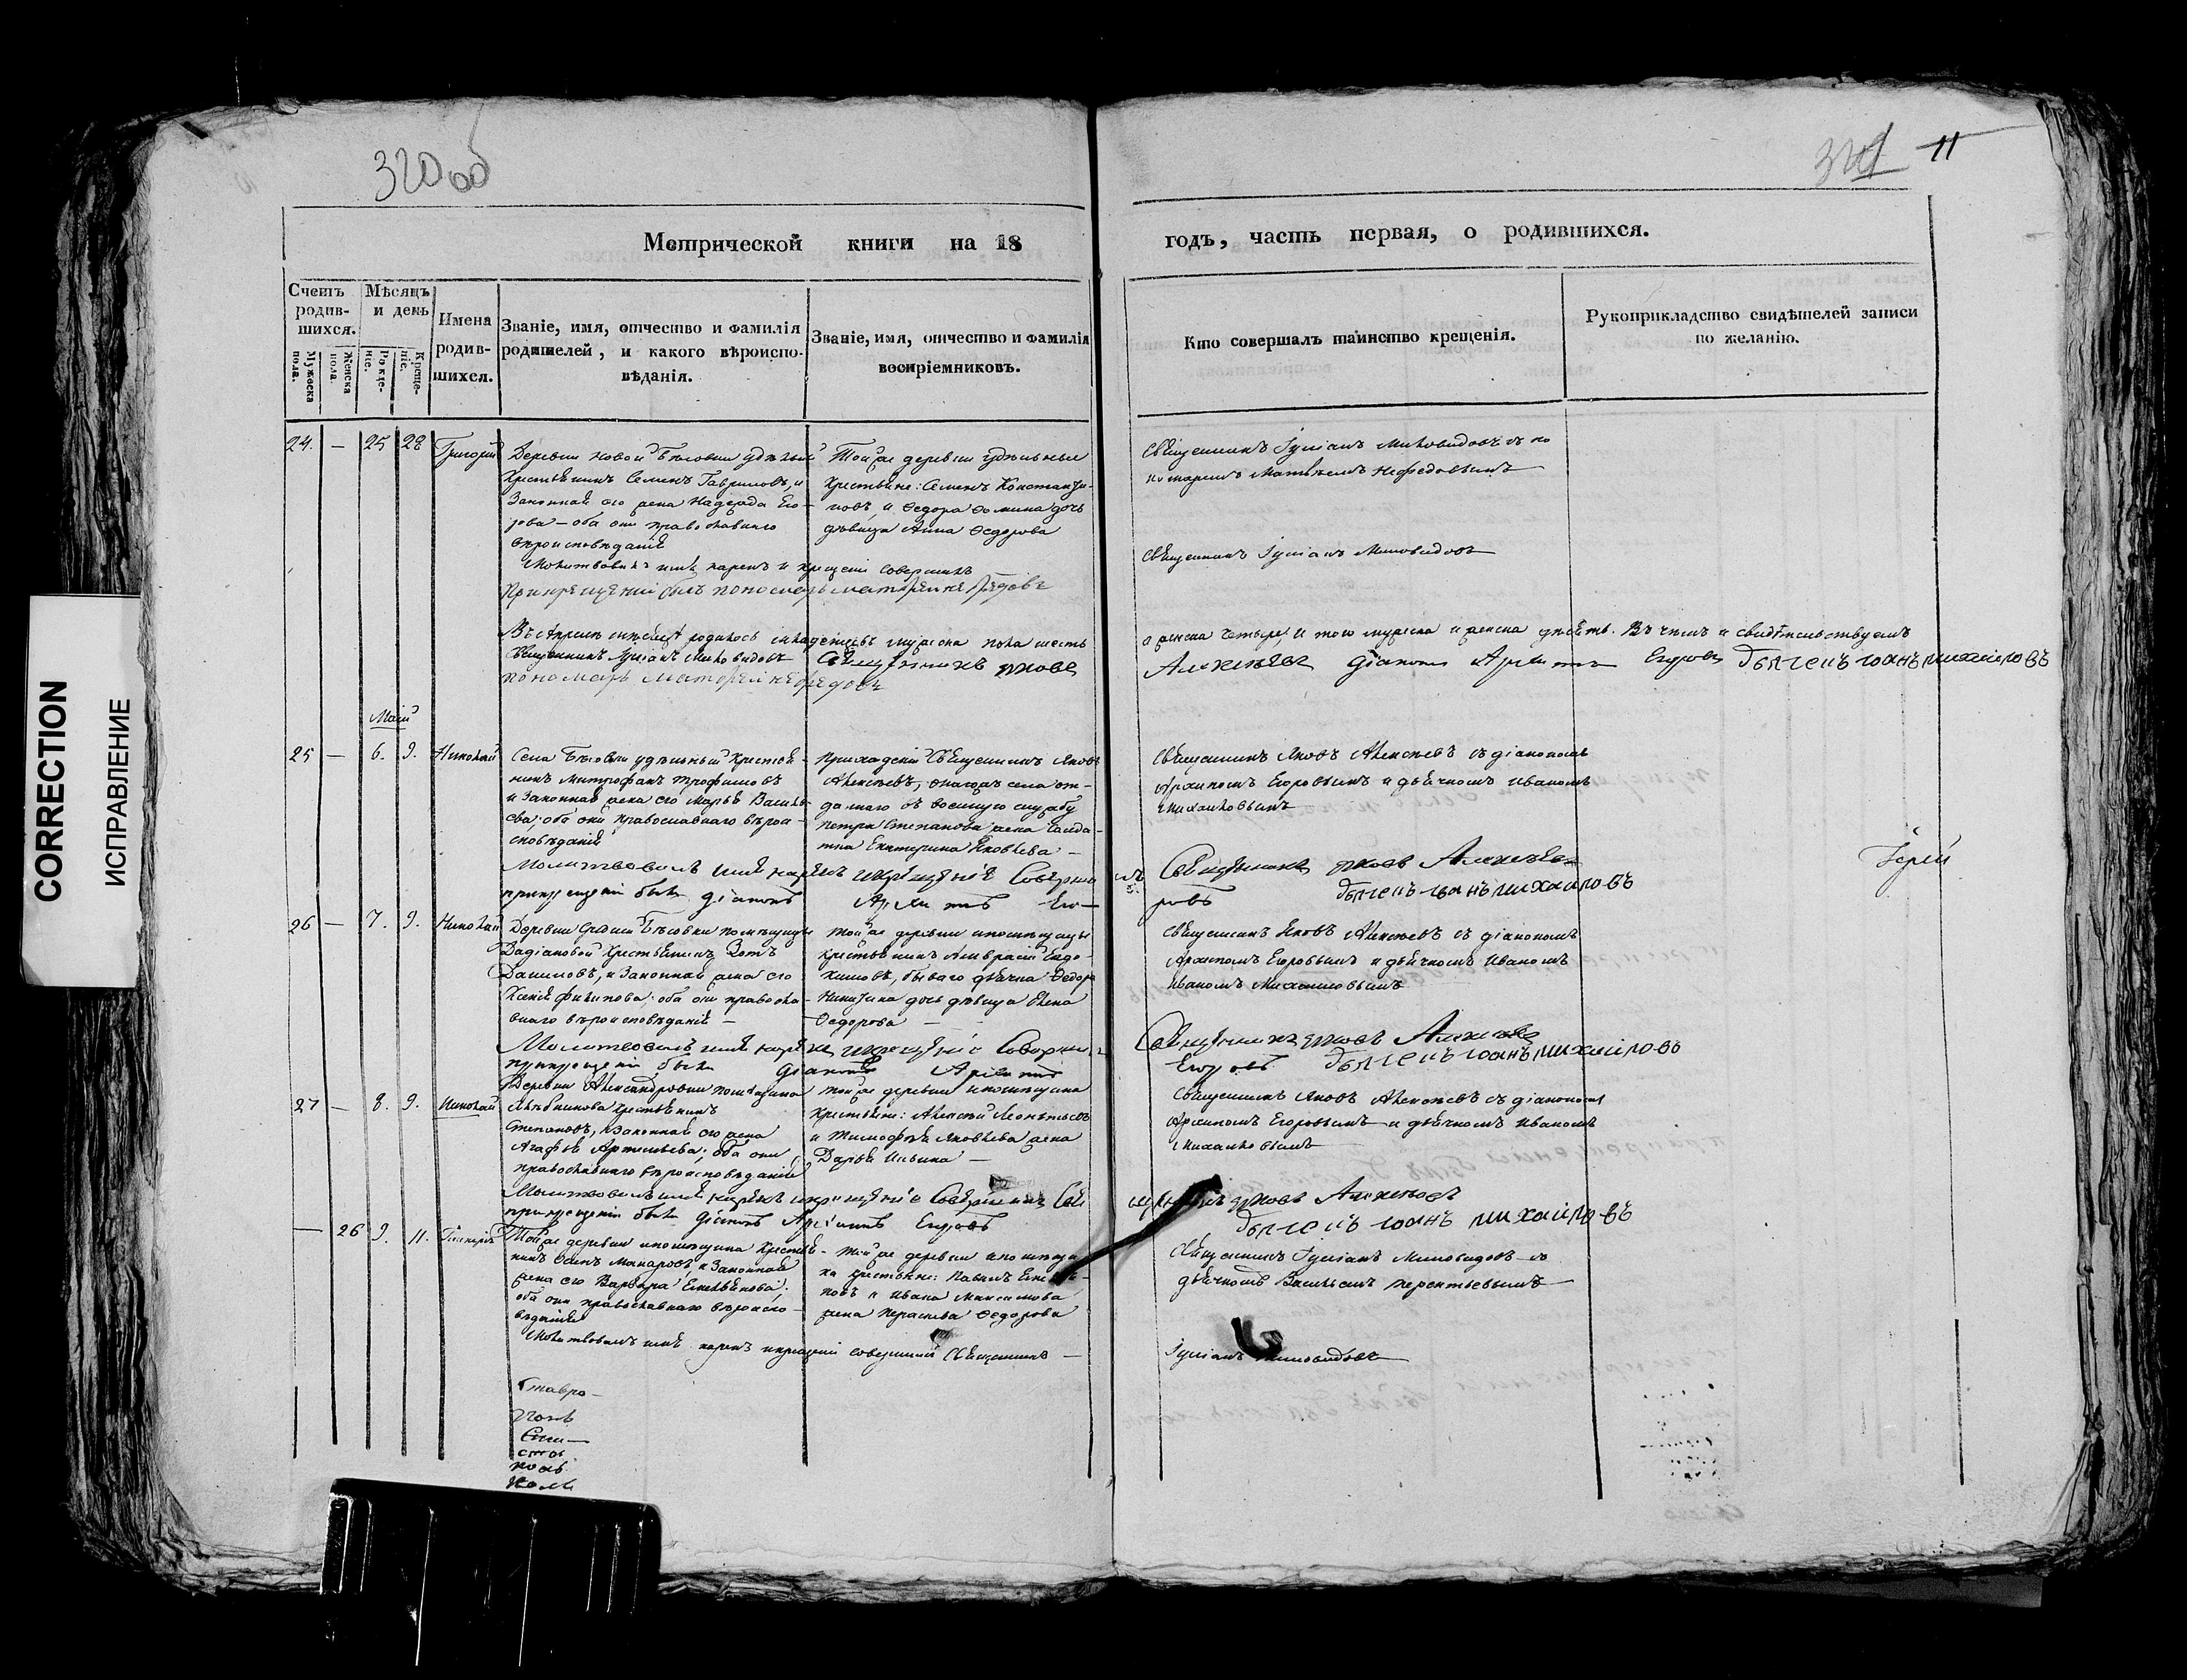 320 об
11
Метрической книги на 18
годъ, часть первая, о родившихся.
Счетъ родившихся.
Мужеска пола.
Женска пола.
Мѣсяцъ и день
Рожденіе.
Крещеніе.
Имена родившихся.
Званіе, имя, отчество и фамилія родителей, и какого вѣроисповѣданія.
Званіе, имя, отчество и фамилія воспріемниковъ.
Кто совершалъ таинство крещенія.
Рукоприкладство свидѣтелей записи по желанію.
24. — 25 28 Григорій
Деревни Новой Бѣсовки удѣльный
Крестьянинъ Семенъ Гавриловъ, и
Законная его жена Надежда Его-
рова — оба они православнаго
вѣроисповѣданія
Тойже деревни удѣльные
Крестьяне: Семенъ Константи-
новъ и Ѳедора Ѳомина дочь
дѣвица Анна Ѳедорова
Священникъ Іуліанъ Миловидовъ съ по
номаремъ Матвѣемъ Нефедовымъ
Молитвовалъ имя нарекъ и крещеніе совершилъ
Священникъ Іуліанъ Миловидовъ
При крещеніи былъ пономарь Матвѣй Нефедовъ
Въ Апрѣлѣ мѣсяцѣ родилось младенцевъ мужеска пола шесть
а женска четыре. И того мужеска и женска десѣть. Въ чемъ и свидѣтельствуемъ
Священникъ Іуліанъ Миловидовъ Священникъ Яковъ
Алексѣевъ Діаконъ Архипъ Егоровъ Дьячекъ Іоанъ Михайловъ
Пономарь Матвѣй Нефедовъ
Май
25 — 6. 9. Николай
Села Бѣсовки удѣльный Крестья-
нинъ Митрофанъ Трофимовъ
и Законная жена его Марья Василь-
ева: оба они православнаго вѣрои-
сповѣданія
Приходскій Священникъ Яковъ
Алексѣевъ, онагожъ села от-
даннаго въ военную службу
Петра Степанова жена солда-
тка Екатерина Яковлева —
Священникъ Яковъ Алексѣевъ съ діакономъ
Архипомъ Егоровымъ и дьячкомъ Иваномъ
Михайловымъ
Молитвовалъ имя нарекъ и крещеніе Соверши
лъ Священникъ Яковъ Алексѣевъ
Іерей
при крещеніи были діаконъ Архипъ Его-
ровъ Дьячекъ Іоанъ Михайловъ
26 — 7. 9. Николай
Деревни Средней Бѣсовки помѣщицы
Дадіановой Крестьянинъ Зотъ
Даниловъ, и Законная жена его
Ксенія Филипова: оба они правосла-
внаго вѣроисповѣданія —
Тойже деревни и помѣщицы
Крестьянинъ Амвросій Евдо-
кимовъ, бывшаго дьячка Ѳедора
Никитина дочь дѣвица Елена
Ѳедорова —
Священникъ Яковъ Алексѣевъ съ діакономъ
Архипомъ Егоровымъ и дьячкомъ Иваномъ
Иваномъ Михайловымъ
Молитвовалъ имя нарекъ и крещеніе Совершилъ
Священникъ Яковъ Алексѣевъ
при крещеніи были діаконъ Архипъ
Егоровъ Дьячекъ Іоанъ Михайловъ
27 — 8. 9. Николай
Деревни Александровки помѣщика
Крестьянинъ
Степановъ, и Законная его жена
Агафья Артемьева; оба они
православнаго вѣроисповѣданія
Тойже деревни и помѣщика
Крестьяне: Алексѣй Леонтьевъ
и Тимофея Яковлева жена
Дарья Ильина —
Священникъ Яковъ Алексѣевъ съ діакономъ
Архипомъ Егоровымъ и дьячкомъ Иваномъ
Михайловымъ
Молитвовалъ имя нарекъ и крещеніе Совершилъ Свя
щенникъ Яковъ Алексѣевъ
при крещеніи были Діаконъ Архипъ Егоровъ
Дьячекъ Іоанъ Михайловъ
— 26 9. 11. Гликерія
Тойже деревни и помѣщика Крестья-
нинъ Осипъ Макаровъ, и Законная
жена его Варвара Емельянова;
оба они православнаго вѣроиспо-
вѣданія
Тойже деревни и помѣщи-
ка крестьяне: Павелъ
и Ивана Максимова
жена Параскева Ѳедорова
Священникъ Іуліанъ Миловидовъ со
дьячкомъ Васильемъ Терентьевымъ
Молитвовалъ имя нарекъ и крещеніе совершилъ Священникъ —
Іуліанъ Миловидовъ
CORRECTION
ИСПРАВЛЕНИЕ